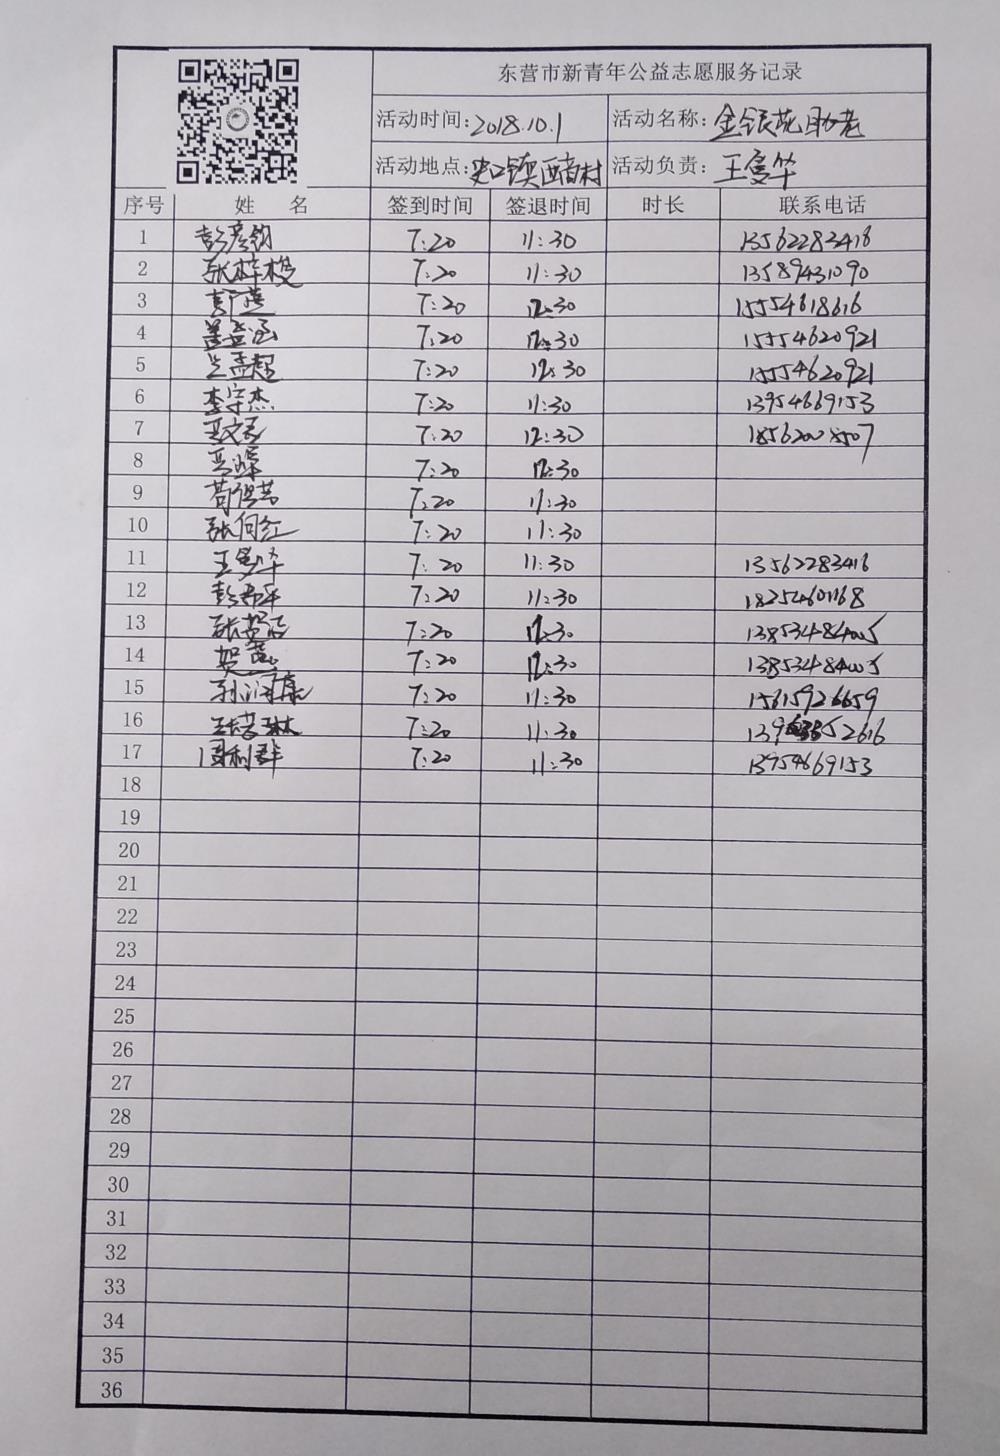 东营市新青年公益志愿服务记录
活动时间:2018.10.1 活动名称:金银苑助老
活动地点:史口镇西商村 活动负责:王曼华
序号 姓名 签到时间 签退时间 时长 联系电话
1 彭彦钧 7:20 11:30 13562283416
2 张梓桉 7:20 11:30 13589431090
3 7:20 12:30 15554618616
4 7:20 12:30 15554620921
5 兰孟超 7:20 12:30 15554620921
6 李宇杰 7:20 11:30 13954669153
7 7:20 12:30 18562008507
8 7:20 12:30
9 7:20 11:30
10 张向红 7:20 11:30
11 王曼华 7:20 11:30 13562283416
12 7:20 11:30 18254601168
13 7:20 12:30 13853484005
14 7:20 12:30 13853484005
15 孙润康 7:20 11:30 15615926659
16 7:20 11:30
17 周利群 7:20 11:30 13954669153
18
19
20
21
22
23
24
25
26
27
28
29
30
31
32
33
34
35
36